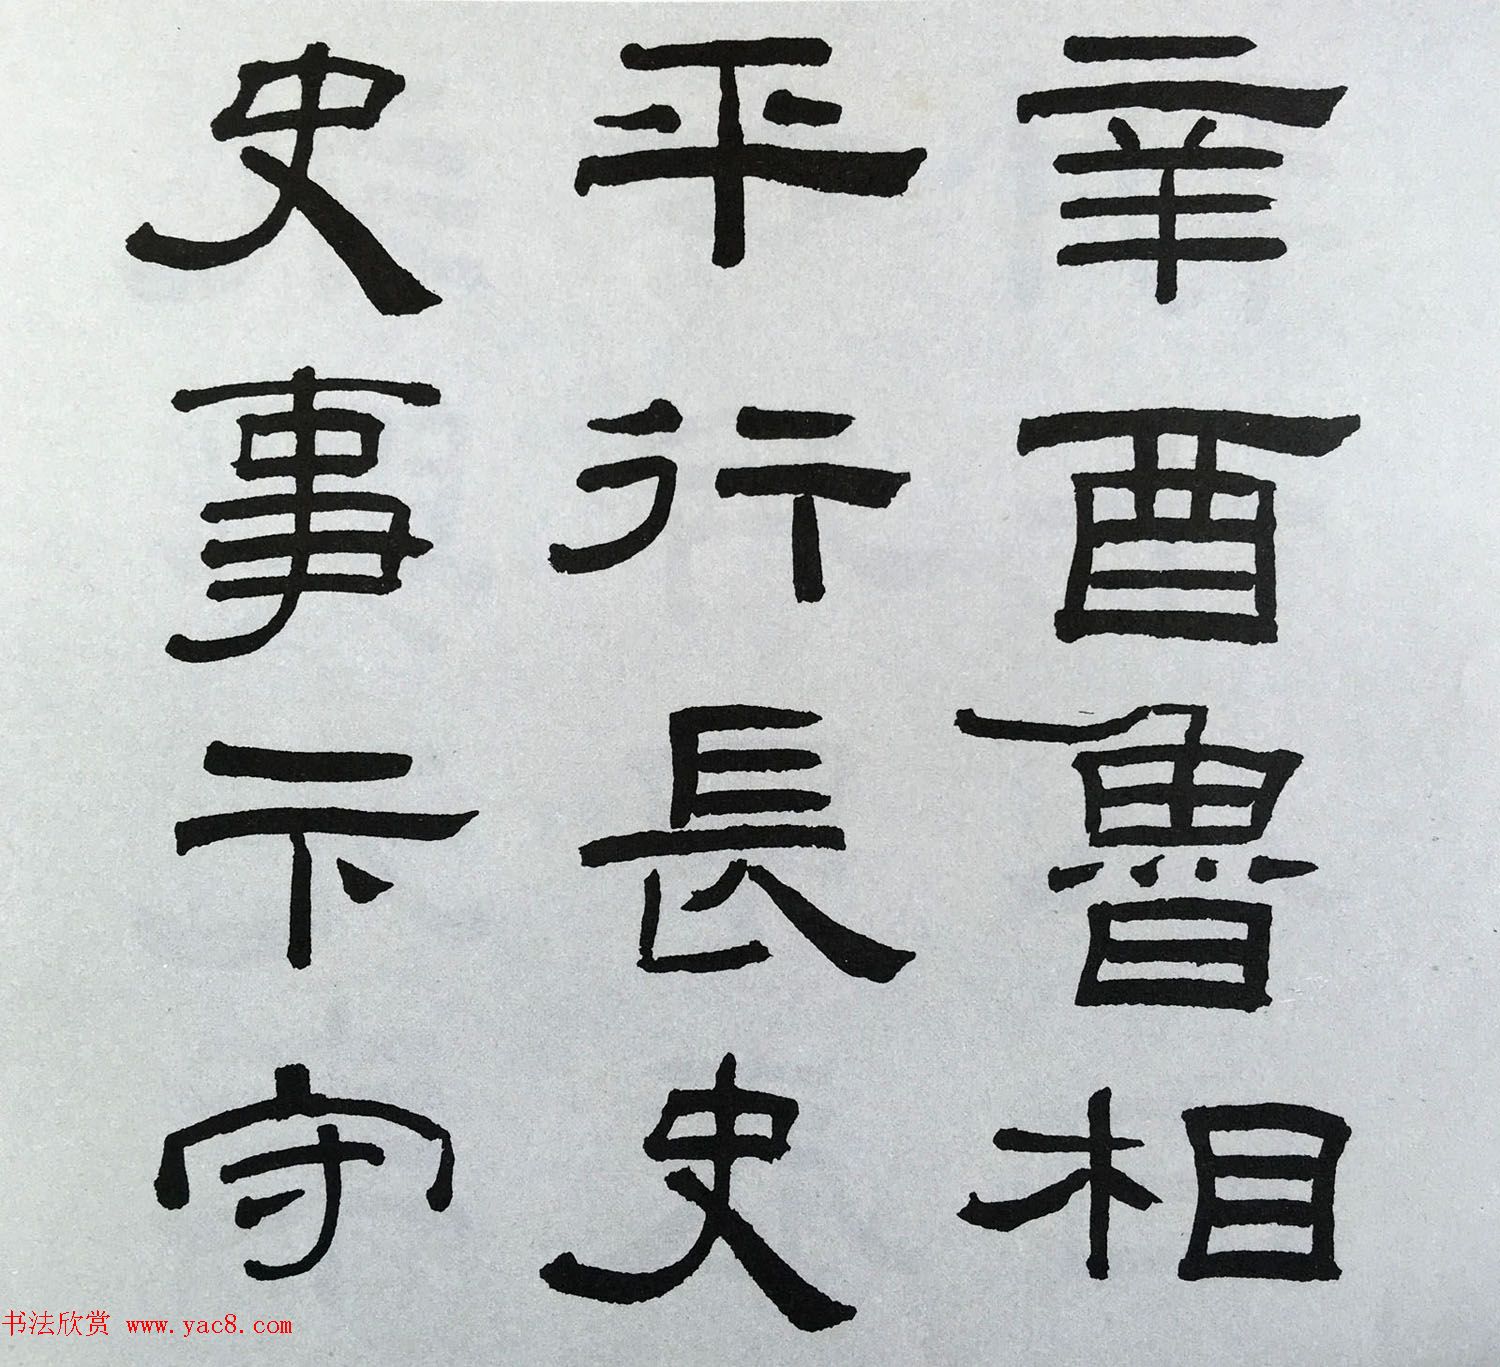 辛酉魯相
平行長史
史事卞守
书法欣赏 www.yac8.com